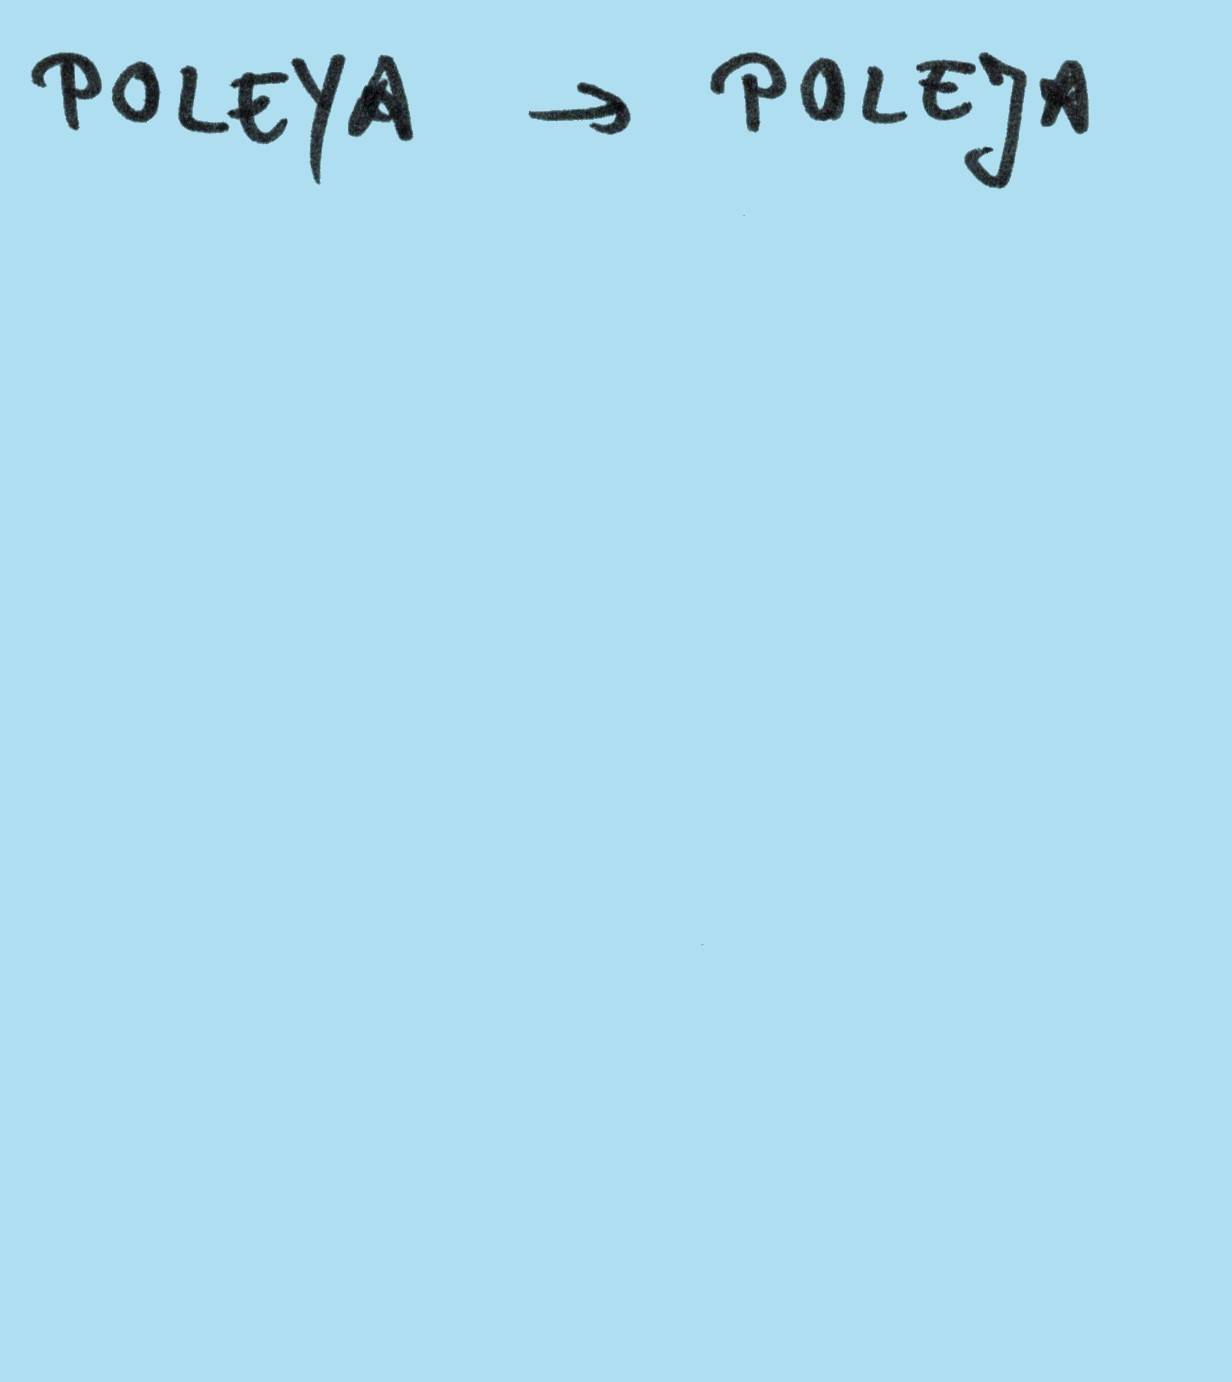 POLEYA → POLEJA